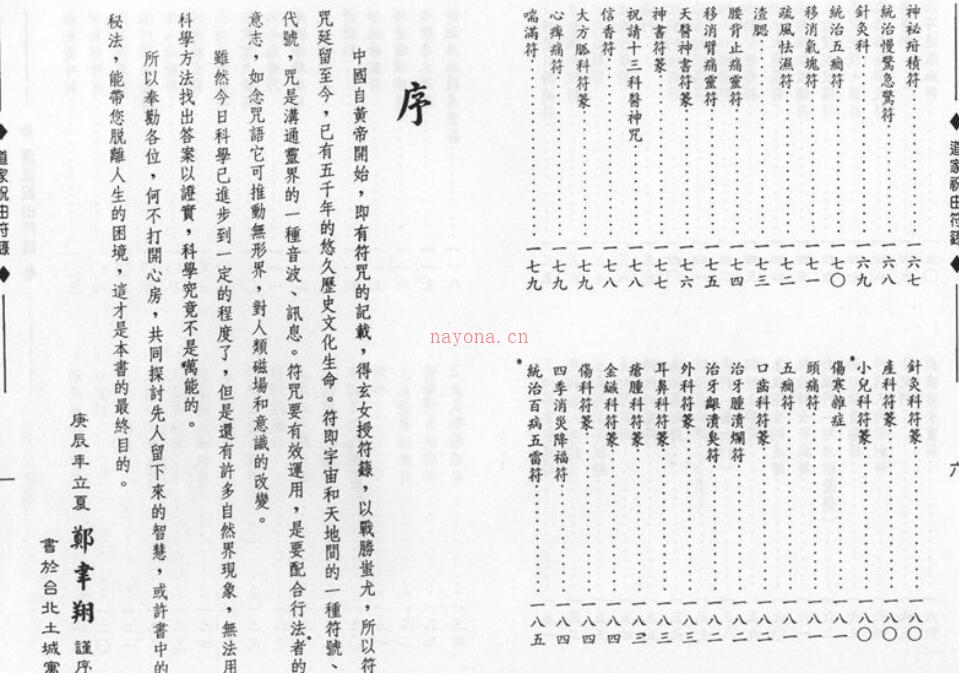 道家祝由符籙
六
神祕疳積符 一六七
統治慢驚急驚符 一六八
針灸科 一六九
統治五癎符 一七〇
移消氣塊符 一七一
疏風怯濕符 一七二
渣腮 一七三
腰背止痛靈符 一七四
移消臂痛靈符 一七五
天醫神書符篆 一七六
神書符篆 一七七
祝請十三科醫神咒 一七八
信香符 一七八
大方脈科符篆 一七九
心痺痛符 一七九
喘滿符 一七九
針灸科符篆 一八〇
產科符篆 一八〇
小兒科符篆 一八〇
傷寒雜症 一八一
頭痛符 一八一
五癎符 一八一
口齒科符篆 一八二
治牙腫潰爛符 一八二
治牙齦潰臭符 一八二
外科符篆 一八三
耳鼻科符篆 一八三
瘡腫科符篆 一八三
金鏃科符篆 一八四
傷科符篆 一八四
四季消災降福符 一八四
統治百病五雷符 一八五
序
中國自黃帝開始，即有符咒的記載，得玄女授符籙，以戰勝蚩尤，所以符
咒延留至今，已有五千年的悠久歷史文化生命。符即宇宙和天地間的一種符號、
代號，咒是溝通靈界的一種音波、訊息。符咒要有效運用，是要配合行法者的
意志，如念咒語它可推動無形界，對人類磁場和意識的改變。
雖然今日科學已進步到一定的程度了，但是還有許多自然界現象，無法用
科學方法找出答案以證實，科學究竟不是萬能的。
所以奉勸各位，何不打開心房，共同探討先人留下來的智慧，或許書中的
秘法，能帶您脫離人生的困境，這才是本書的最終目的。
庚辰年立夏 鄭聿翔 謹序
書於台北土城寓
道家祝由符籙
一
nayona.cn